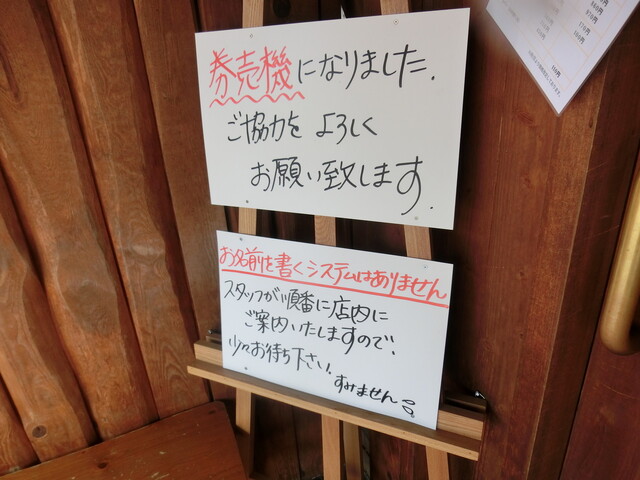 券売機になりました.
ご協力を よろしく
お願い致します.
お名前を書くシステムはありません
スタッフが順番に店内に
ご案内いたしますので、
少々お待ち下さい.
すみません